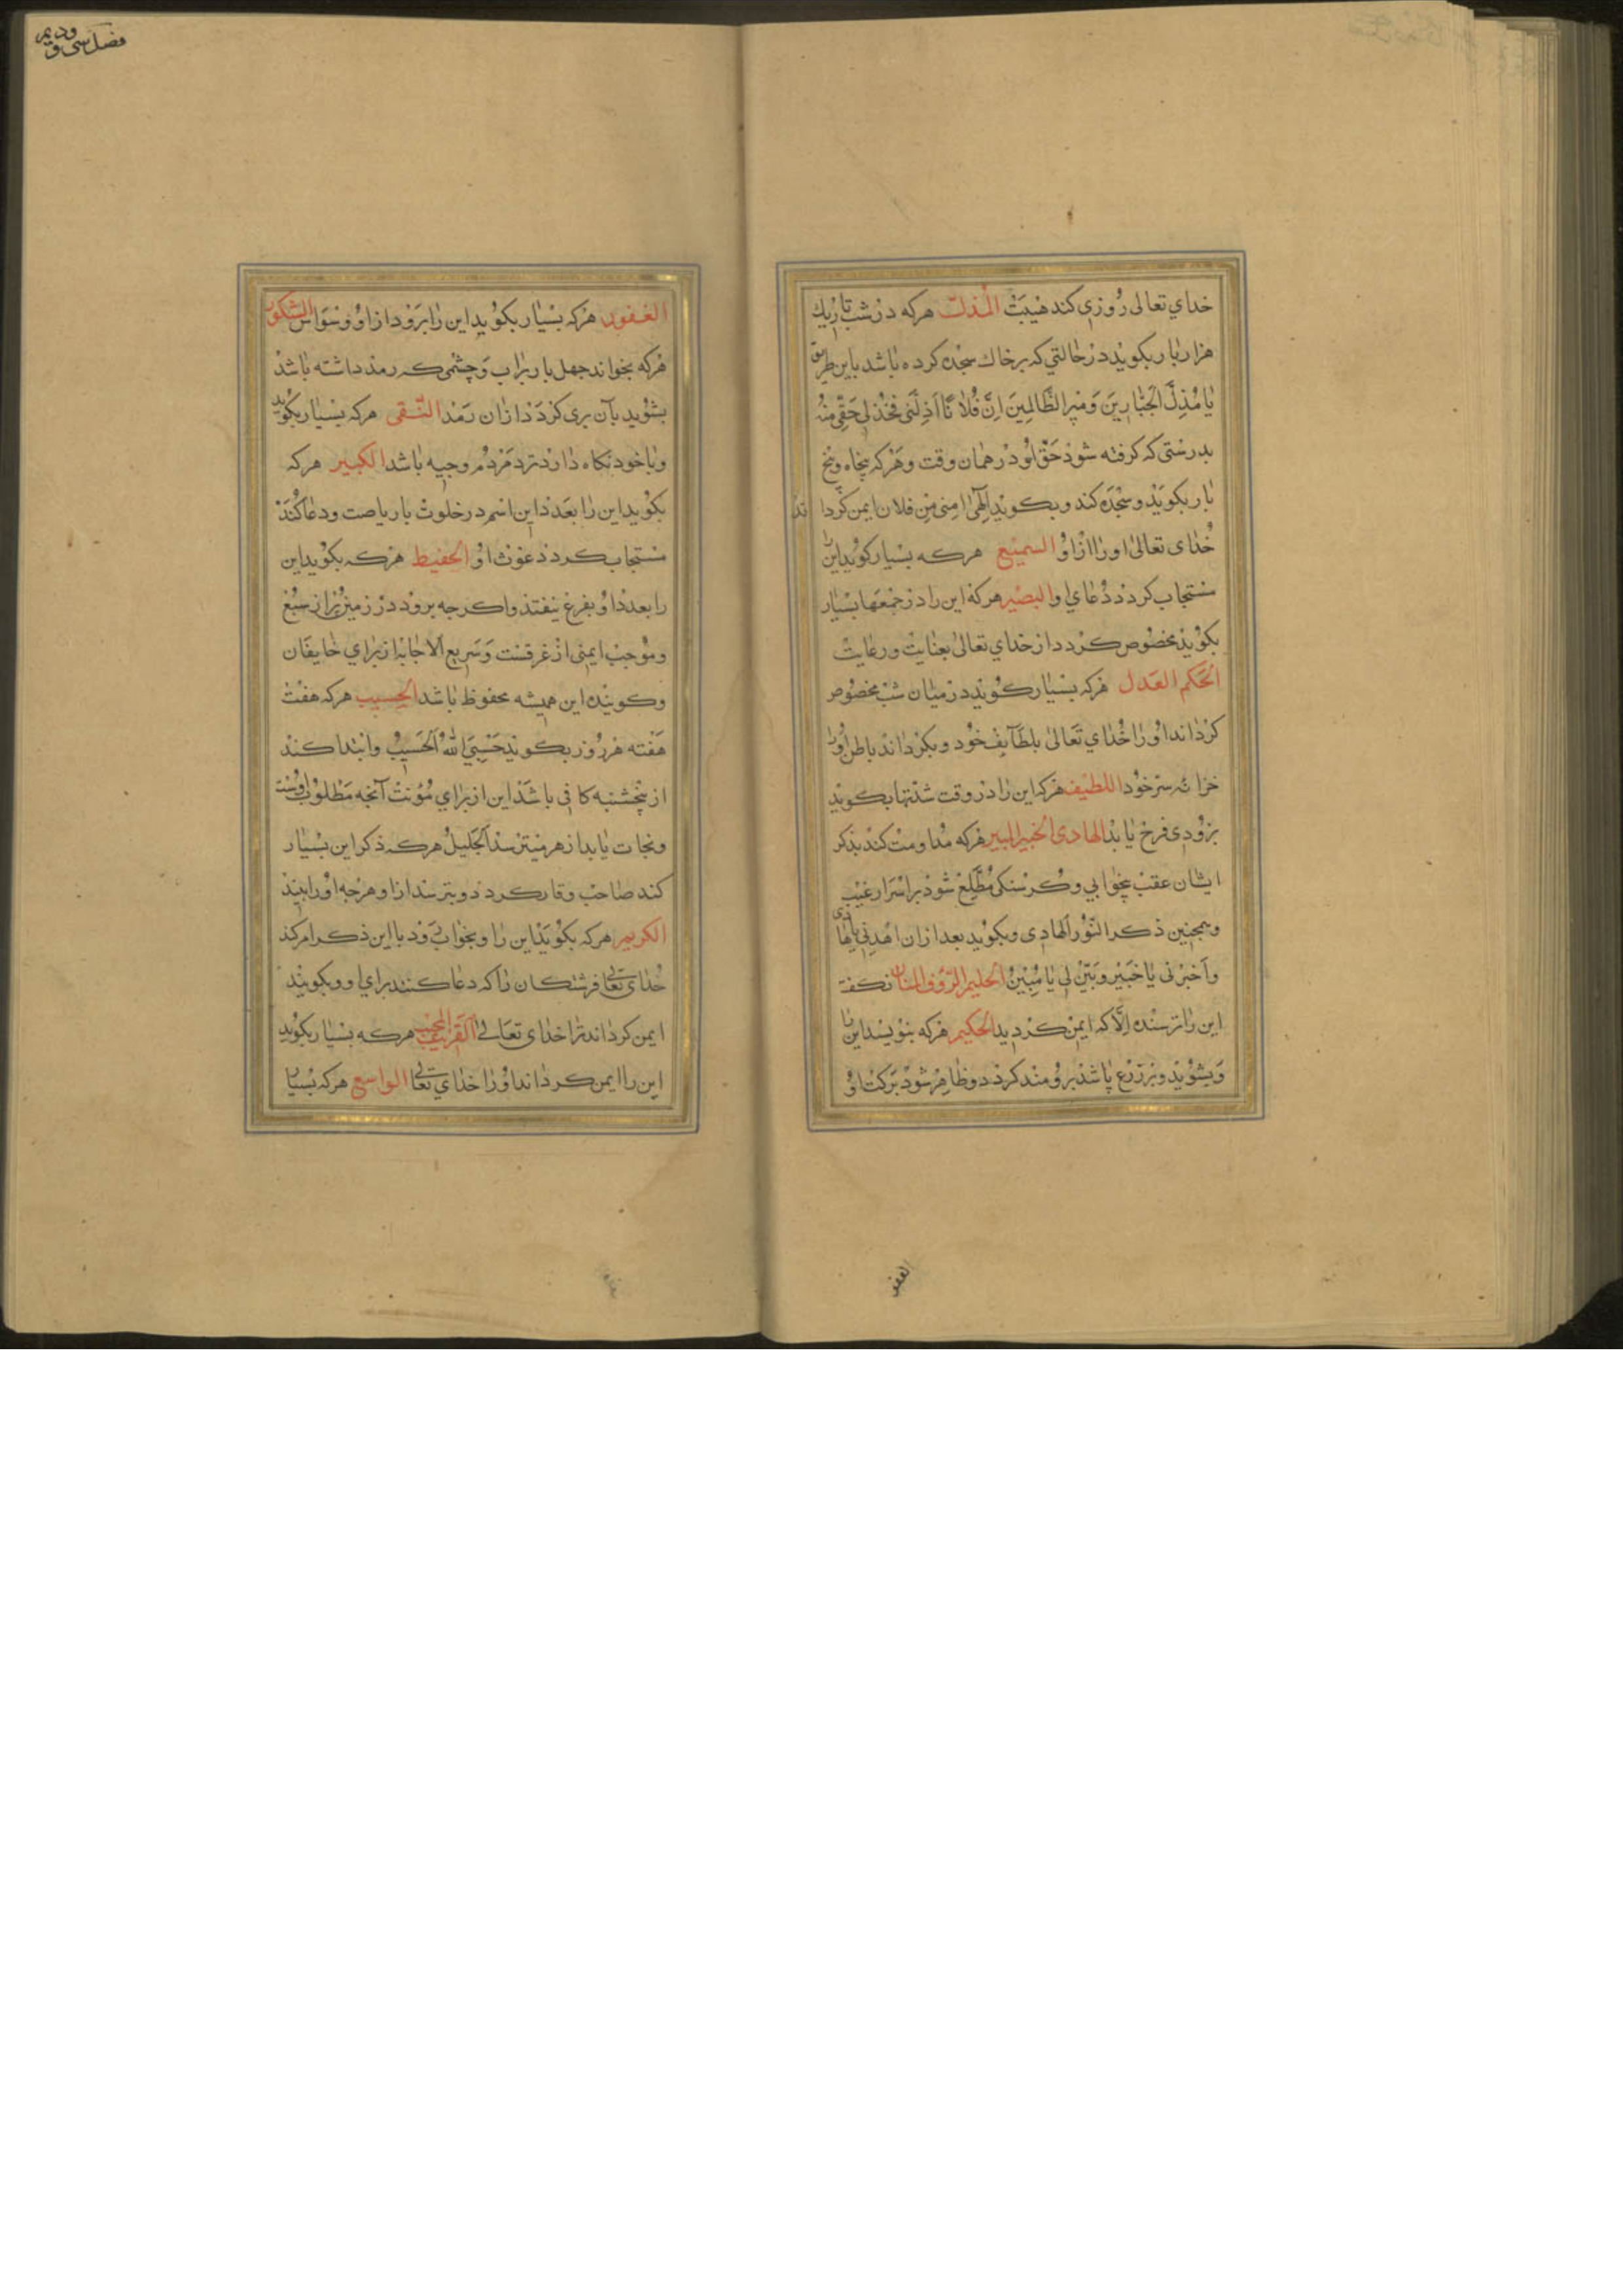 خداي تعالى رُوزي كند هيبَتْ المُذلّ هركه در شب تاريك
هزار بار بكويد در حالتي كه بر خاك سجده كرده باشد باين طريق
يا مُذِلَّ الجَبّارينَ وَمُبيرالظّالِمينَ اِنَّ فُلانًا اَذَلَّنى فخُذلى حَقّى مِنهُ
بدرستى كه كرفته شوذ حَقّ او در همان وقت و هركه پنجاه و پنج
بار بكويد و سجده كند و بكويد الهى امنى مِن فلان ايمن كردا
ند
خُداى تعالى او را از او السميع هركه بسيار كويد اين را
مستجاب كردد دُعاي او البصير هركه اين را در جمعها بسيار
بكويد مخصوص كردد از خداي تعالى بعنايت و رعايت
الحَكم العَدل هركه بسيار كويد در ميان شب مخصوص
كرداند او را خُداي تَعالى بلطآيف خود و بكرداند باطن او را
خزانه سرّ خود اللطيف هركه اين را در وقت شدتها بكويد
بزودى فرج يابد الهادى الخبير المبير هركه مداومت كند بذكر
ايشان عقب بيخوابي و كرسنكى مُطّلِع شوذ بر اسرار غيب
و همچنين ذكر النّور الهادى و بكويد بعد از ان اهدِنى يا هادى
وَاَخبِرنى يا خَبير وَبَيّن لى يا مُبِينُ الحليم الرّؤف المنان نكفت
اين را ترسنده اِلّا كه ايمن كرديد الحكيم هركه بنويسد اين را
وَبشويد و بر زرع پاشد برومند كردد و ظاهر شود بَركت او
الغفو
فصل سى و ديم
الغفور هركه بسيار بكويد اين را برَوَد از او وسواس الشكور
هركه بخواند چهل بار براب وَچشمى كه رمد داشته باشد
بشويد بآن برى كردَد از ان رَمَد النّقى هركه بسيار بكويد
و باخود نكاه دارد نزد مَردُم وجيه باشد الكبير هركه
بكويد اين را بعَدَد اين اسم در خلوت با رياضت و دعا كُنَد
مستجاب كردد عَوث او الحفيظ هركه بكويد اين
را بعدد او بفرغ نيفتد و اكرچه برود در زمين پُر از سَبُع
وموجب ايمنى از غرقست وَسَريع الاجابَه از براي خايفان
و كوينده اين هميشه محفوظ باشد الحسيب هركه هفت
هَفته هر روز بكويد حَسبِىَ اللهُ الحَسيبُ و ابتدا كند
از پنجشنبه كافى باشد اين از براي مُؤنت آنچه مَطلوب اوست
ونجات يابد از هر ميترسد اَلجَليلُ هركه ذكر اين بسيار
كند صاحب وقار كردد و بترسد از او هرچه او را بيند
الكريم هركه بكويد اين را و بخواب رَوَد با اين ذكر امر كند
خُداى تعالى فرشتكان را كه دعا كنند براي او و بكويند
ايمن كرداند ترا خداى تعالى اَلقَريب المجيب هركه بسيار بكويد
اين را ايمن كرداند او را خداي تعالى الواسع هركه بسيار